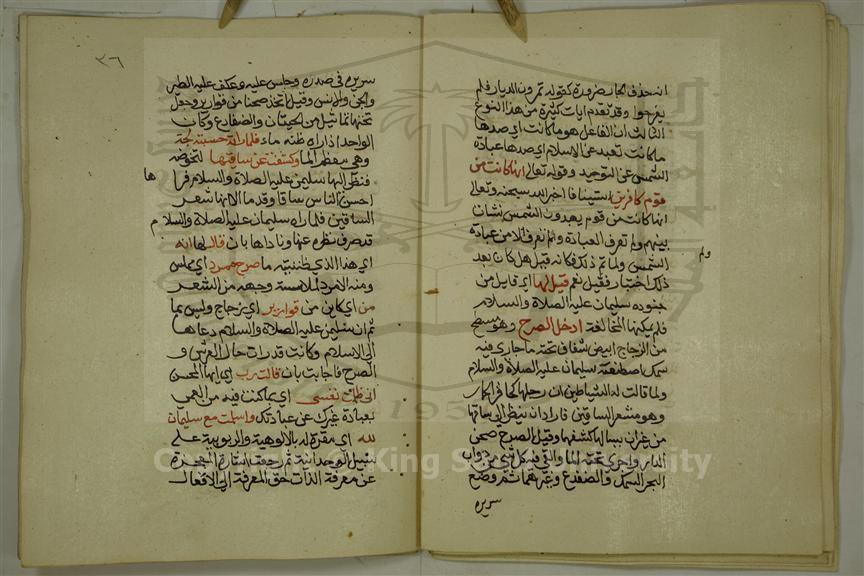 انه حذف الجار ضرورة كقوله تمرون الديار فلم
يعوجوا وقد تقدم ايات كثيرة من هذا النوع
الثالث ان الفاعل هو ما كانت اي صدها
ما كانت تعبد عن الاسلام اي صدها عبادة
الشمس عن التوحيد وقوله تعالى انها كانت من
قوم كافرين استينافا اخبر الله سبحنه وتعالى
انها كانت من قوم يعبدون الشمس نشات
بينهم ولم تعرف العبادة ولم تعرف الا من عبادة
ولم
الشمس ولما تم ذلك فكانه قيل هل كان بعد
ذلك اختبار فقيل نعم قيل لها اي قايل من
جنوده سليمان عليه الصلاة والسلام
فلم يمكنها المخالفة ادخلي الصرح وهو سطح
من الزجاج ابيض شفاف تحته ماء جاري فيه
سمك اصطنعه سليمان عليه الصلاة والسلام
ولما قالت له الشياطين ان رجلها كحافر الحمار
وهو مشعر الساقين فاراد ان ينظر الى ساقها
من غيران يسالها كشفها وقيل الصرح صحن
الدار واجرى تحته الماء والقى فيه كل شي من دواب
البحر السمك والضفدع وغيرهما ثم وضع
سريره
٣٦
سريره في صدره وجلس عليه وعكف عليه الطير
والجن والانس وقيل اتخذ صحنا من قوارير وجعل
تحتها تماثيل من الحيتان والضفادع وكان
الواحد اذا راه ظنه ماء فلما راته حسبته لجة
وهي معظم الماء وكشفت عن ساقيها لتخوضه
فنظر اليها سليمن عليه الصلاة والسلام فراها
احسن الناس ساقا وقدما الا انها شعر
الساقين فلما راه سليمان عليه الصلاة والسلام
قد صرف نظره عنها وناداها بان قال لها انه
اي هذا الذي ظننتيه ماء صرح ممرد اي مملس
ومنه الامرد لملاسة وجهه من الشعر
من اي كاين من قوارير اي زجاج وليس بماء
ثم ان سليمن عليه الصلاة والسلام دعاها
الى الاسلام وكانت قد رات حال العرش و
الصرح فاجابت بان قالت رب اي ايها المحسن
اني ظلمت نفسي اي بما كنت فيه من العمى
بعبادة غيرك عن عبادتك واسلمت مع سليمان
لله اي مقرة له بالالوهية والربوبية على
سبيل الوحدانية ثم رجعت
عن معرفة الذات حق المعرفة الى الافعال
Copyright © King Saud University
195